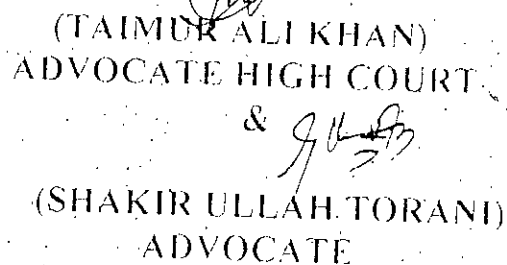 (TAIMUR ALI KHAN)
ADVOCATE HIGH COURT
&
(SHAKIR ULLAH TORANI)
ADVOCATE